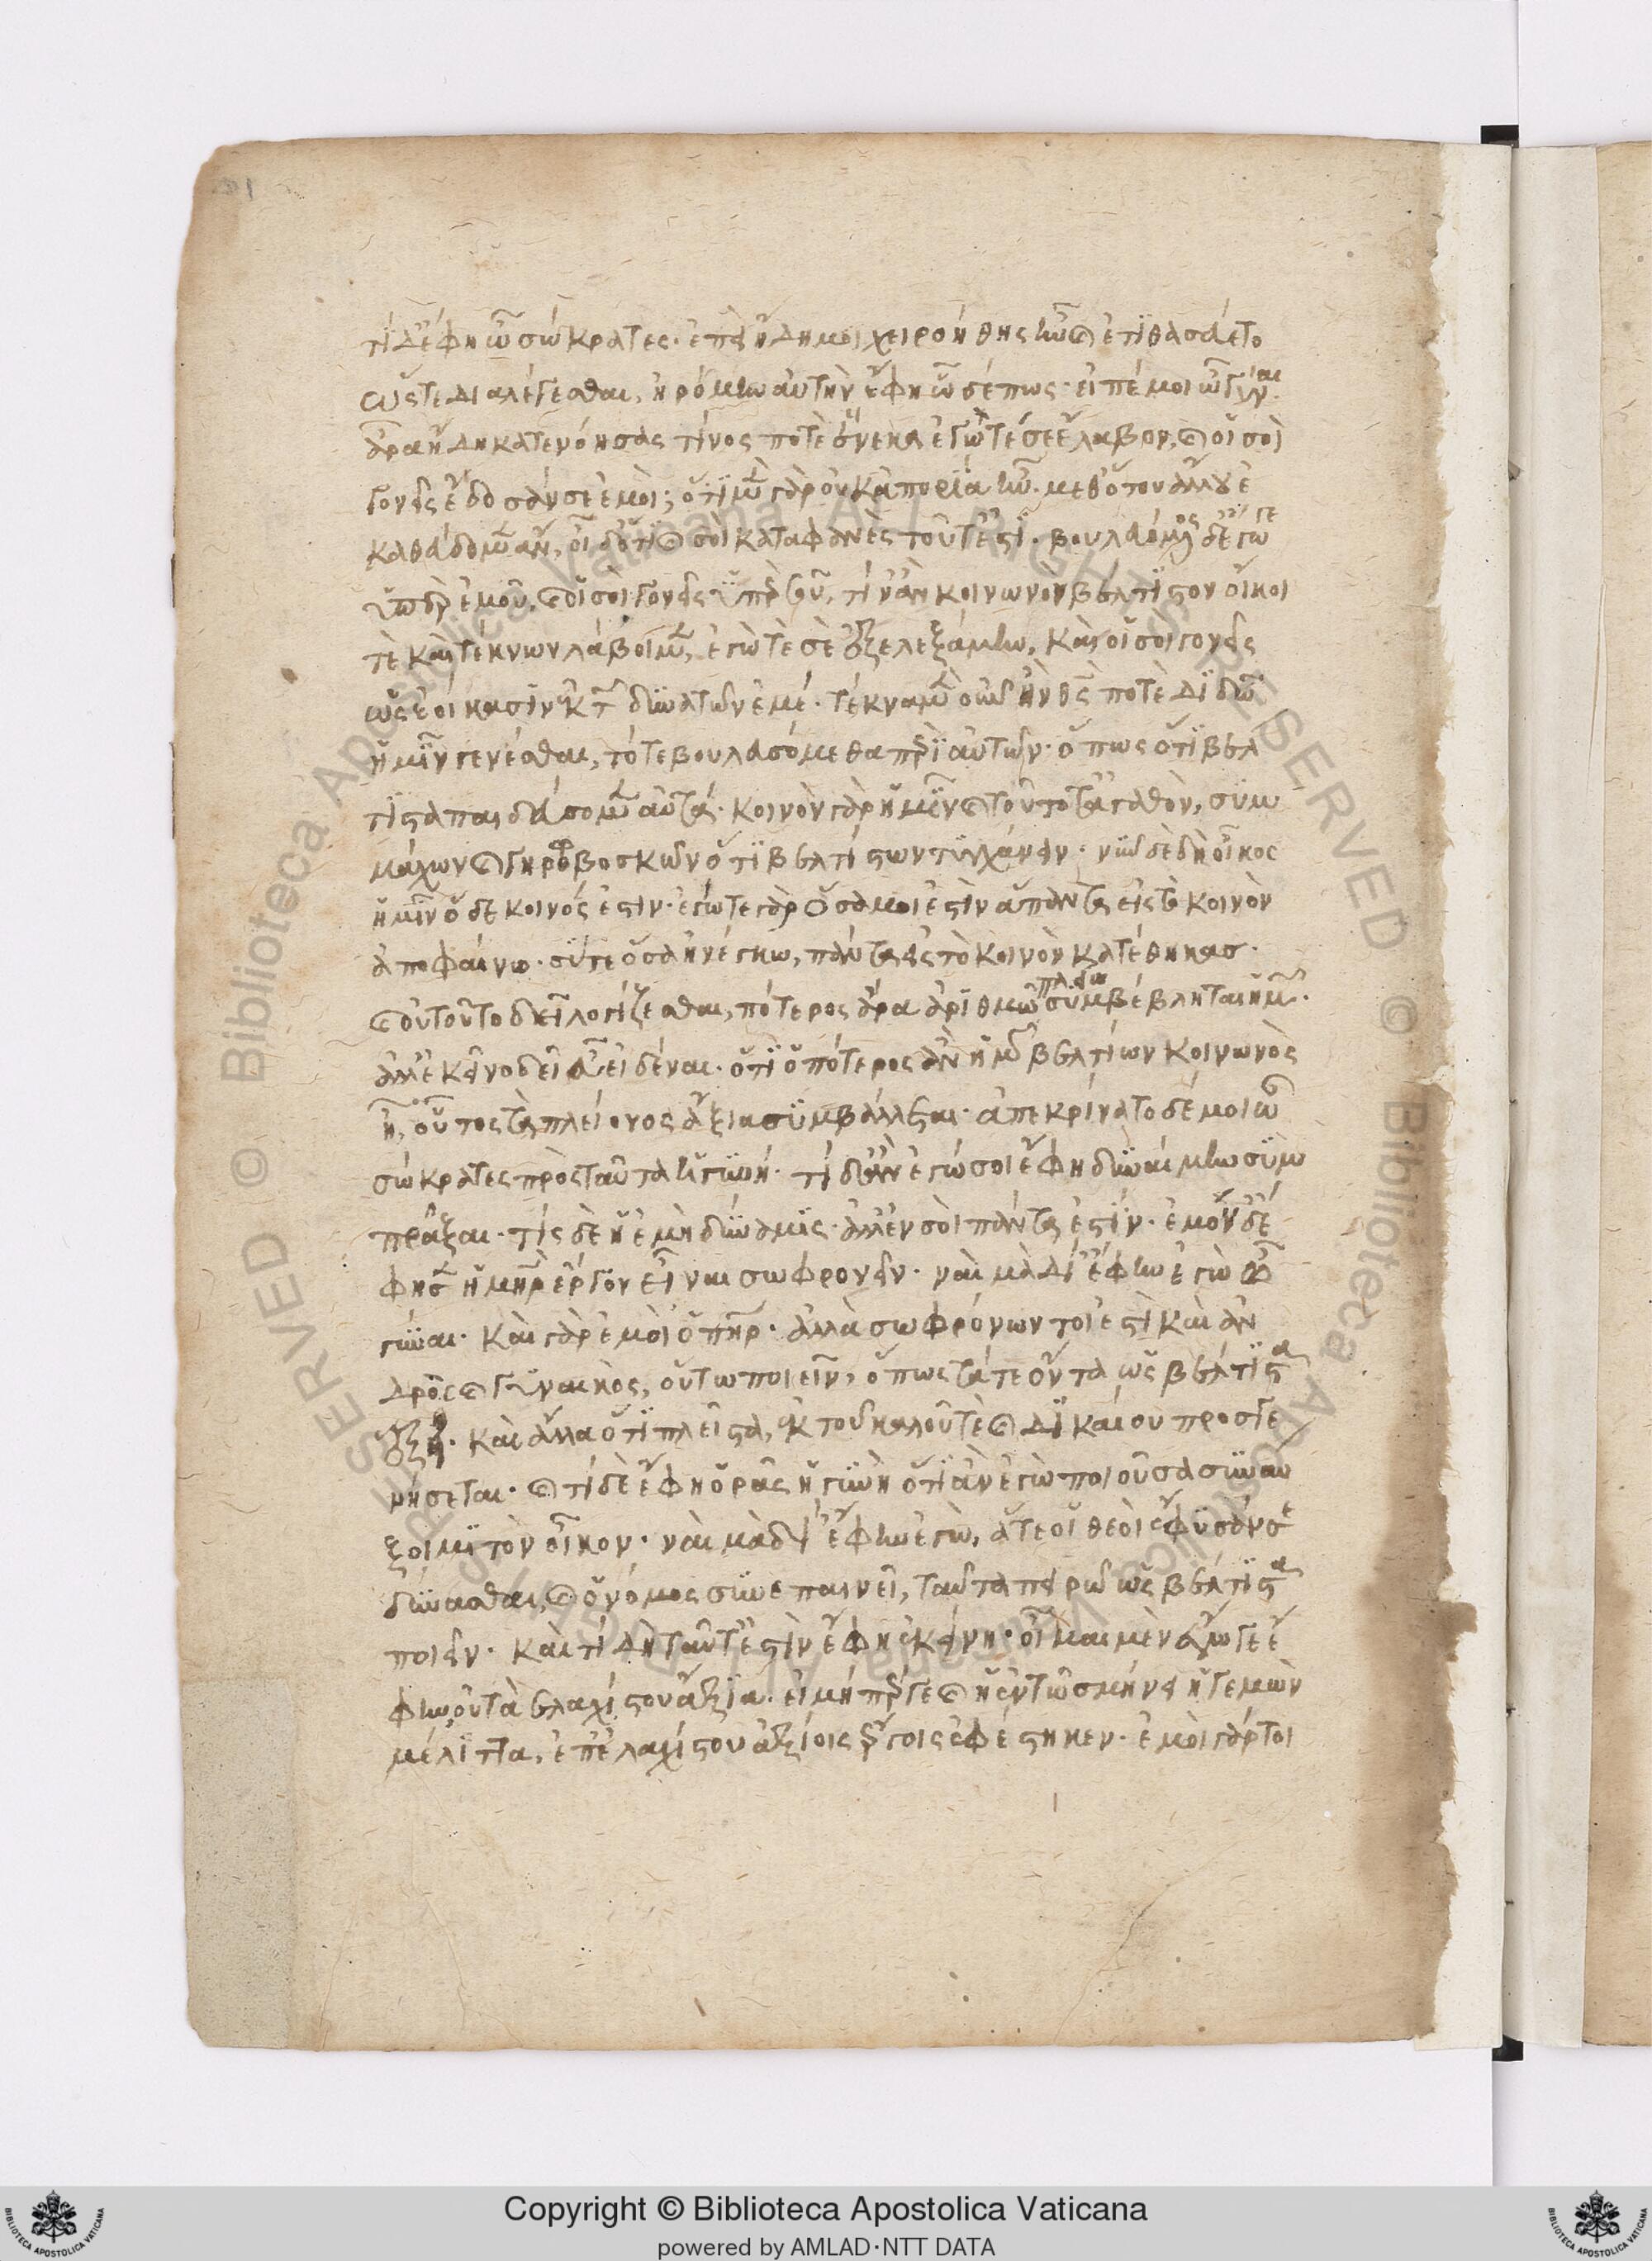 τί δ' ἔφη ὦ σώκρατες. ἐπεὶ ἤδη μοι χειροήθης ἦν καὶ ἐτιθασεύετο
ὥστε διαλέγεσθαι, ἠρόμην αὐτὴν ἔφη ὧδέ πως. εἰπέ μοι ὦ γύναι.
ἆρα ἤδη κατενόησας τίνος ποτὲ ἕνεκα ἐγώ τέ σε ἔλαβον, καὶ οἱ σοὶ
γονεῖς ἔδοσάν σε ἐμοί; ὅτι μὲν γὰρ οὐκ ἀπορία ἦν. μεθ' ὅτου ἄλλου ἐ
καθεύδομεν ἄν, οἶδ' ὅτι καὶ σοὶ καταφανὲς τοῦτ' ἐστί. βουλευόμενος δ' ἔγωγε
ὑπὲρ ἐμοῦ, καὶ οἱ σοὶ γονεῖς ὑπὲρ σοῦ, τίν' ἂν κοινωνὸν βέλτιστον οἴκου
τε καὶ τέκνων λάβοιμεν, ἐγώ τε σὲ ἐξελεξάμην, καὶ οἱ σοὶ γονεῖς
ὡς ἐοίκασιν ἐκ τῶν δυνατῶν ἐμέ. τέκνα μὲν οὖν ἢν θεός ποτε διδῷ
ἡμῖν γενέσθαι, τότε βουλευσόμεθα περὶ αὐτῶν. ὅπως ὅτι βέλ
τιστα παιδεύσομεν αὐτά. κοινὸν γὰρ ἡμῖν καὶ τοῦτο τἀγαθὸν, συμ
μάχων καὶ γηροβοσκῶν ὅτι βελτίστων τυγχάνειν. νῦν δὲ δὴ οἶκος
ἡμῖν ὅδε κοινός ἐστιν. ἐγώ τε γὰρ ὅσα μοι ἐστὶν ἅπαντα εἰς τὸ κοινὸν
ἀποφαίνω. σύ τε ὅσα ἠνέγκω, πάντα εἰς τὸ κοινὸν κατέθηκας.
καὶ οὐ τοῦτο δεῖ λογίζεσθαι, πότερος ἄρα ἀριθμῷ πλείω συμβέβληται ἡμῶν.
ἀλλ' ἐκεῖνο δεῖ εὖ εἰδέναι. ὅτι ὁπότερος ἂν ἡμῶν βελτίων κοινωνὸς
ᾖ, οὗτος τὰ πλείονος ἄξια συμβάλλεται. ἀπεκρίνατο δέ μοι ὦ
σώκρατες πρὸς ταῦτα ἡ γυνή. τί δ' ἂν ἐγώ σοι ἔφη δυναίμην συμ
πρᾶξαι. τίς δὲ ἡ ἐμὴ δύναμις. ἀλλ' ἐν σοὶ πάντα ἐστίν. ἐμὸν δ' ἔ
φησεν ἡ μήτηρ ἔργον εἶναι σωφρονεῖν. ναὶ μὰ Δί' ἔφην ἐγὼ ὦ
γύναι. καὶ γὰρ ἐμοὶ ὁ πατήρ. ἀλλὰ σωφρόνων τοί ἐστι καὶ ἀν
δρὸς καὶ γυναικὸς, οὕτω ποιεῖν, ὅπως τά τε ὄντα ὡς βέλτιστα
ἕξει. καὶ ἄλλα ὅτι πλεῖστα, ἐκ τοῦ καλοῦ τὲ καὶ δικαίου προσγε
νήσεται. καὶ τί δὲ ἔφη ὁρᾷς ἡ γυνὴ ὅτι ἂν ἐγὼ ποιοῦσα συναύ
ξοιμι τὸν οἶκον. ναὶ μὰ δί' ἔφην ἐγὼ, ἅ τε οἱ θεοὶ ἔφυσάν σε
δύνασθαι, καὶ ὁ νόμος συνεπαινεῖ, ταῦτα πειρῶ ὡς βέλτιστα
ποιεῖν. καὶ τί δὴ ταῦτ' ἐστὶν ἔφη ἐκείνη. οἶμαι μὲν ἔγωγε ἔ
φην, οὐ τὰ ἐλαχίστου ἄξια. εἰ μή πέρ γε καὶ ἡ ἐν τῷ σμήνει ἡγεμὼν
μέλιττα, ἐπ' ἐλαχίστου ἀξίοις ἔργοις ἐφέστηκεν. ἐμοὶ γάρ τοι